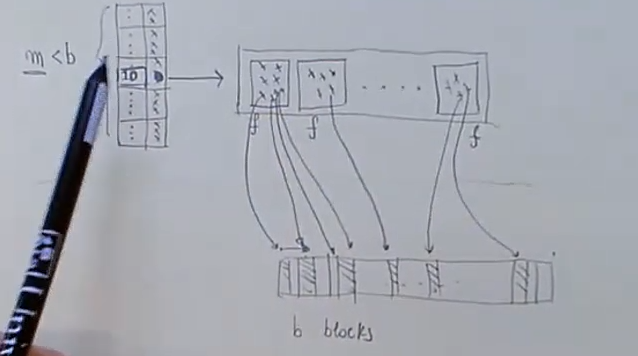 m < b
10
f
f
f
b blocks